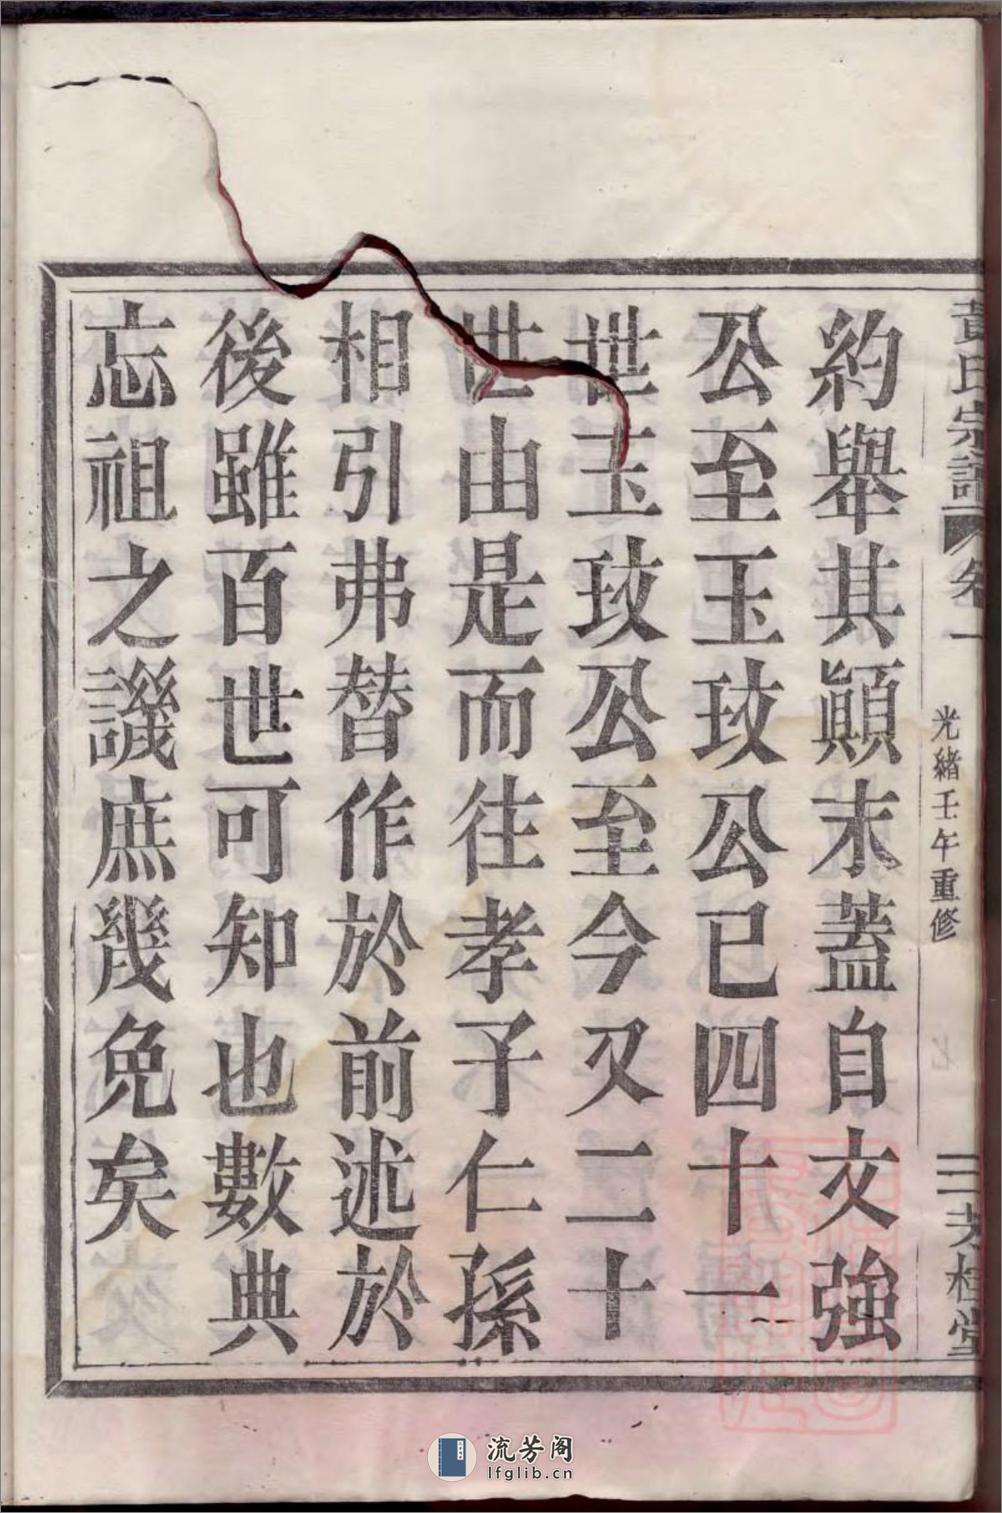 黃氏宗譜 卷一
光緒壬午重修
約舉其顚末蓋自文強
公至玉玟公已四十一
世玉玟公至今又二十
世由是而往孝子仁孫
相引弗替作於前述於
後雖百世可知也數典
忘祖之譏庶幾免矣
流芳阁
lfglib.cn